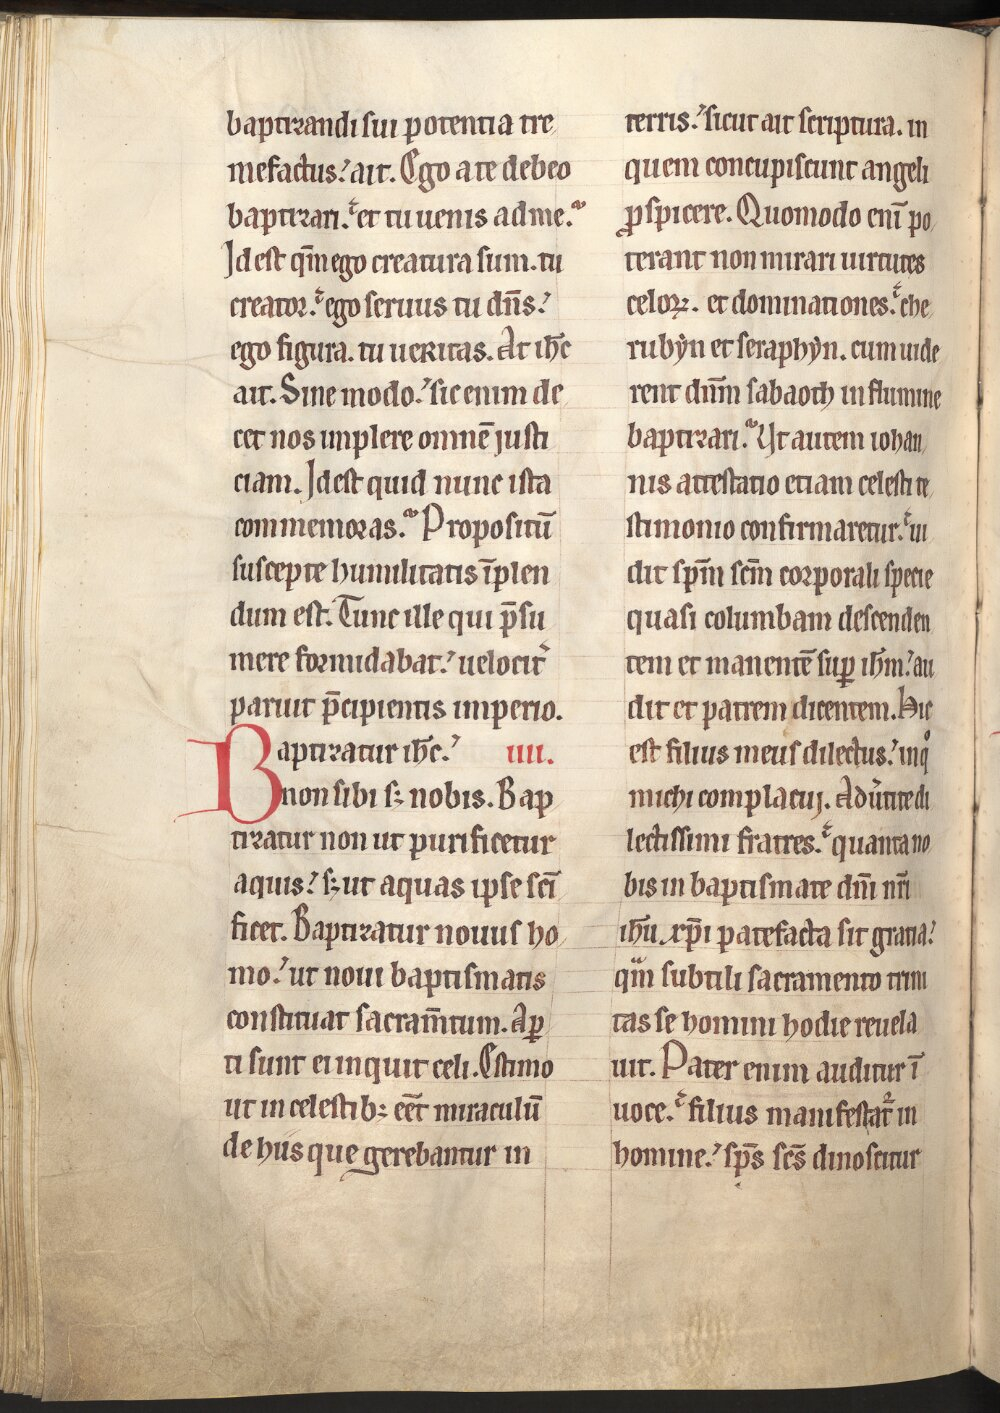 baptizandi sui potentia tre
mefactus: ait. Ego a te debeo
baptizari. et tu uenis ad me.
Idest qm̄ ego creatura sum. tu
creator. ego seruus tu dn̄s:
ego figura. tu ueritas. At ih̄c
ait. Sine modo: sic enim de
cet nos implere omnē iusti
ciam. Idest quid nunc ista
commemoras. Propositū
suscepte humilitatis īplen
dum est. Tunc ille qui p̄su
mere formidabat: uelocit̉
paruit p̄cipientis imperio.
Baptizatur ih̄c: IIII.
non sibi sꝫ nobis. Bap
tizatur non ut purificetur
aquis: sꝫ ut aquas ipse sc̄i
ficet. Baptizatur nouus ho
mo: ut noui baptismatis
constituat sacram̄tum. Aꝑ
ti sunt ei inquit celi. Estimo
ut in celestibꝫ eēt miraculū
de hiis que gerebantur in
terris: sicut ait scriptura. in
quem concupiscunt angeli
ꝓspicere. Quomodo eni̅ po
terant non mirari uirtutes
celoꝝ. et dominationes. che
rubẏn et seraphẏn. cum uide
rent dn̄m sabaoth in flumine
baptizari. Ut autem iohan
nis attestatio etiam celesti te
stimonio confirmaretur. ui
dit sp̄m sc̄m corporali specie
quasi columbam descenden
tem et manentē suꝑ ih̄m: au
dit et patrem dicentem. Hic
est filius meus dilectus: in qͦ
michi complacuj. Adu̓tite di
lectissimi fratres. quanta no
bis in baptismate dn̄i nr̄i
ih̄u xp̄i patefacta sit gratia:
qm̄ subtili sacramento trini
tas se homini hodie reuela
uit. Pater enim auditur ī
uoce. filius manifestat᷑ in
homine: sp̄s sc̄s dinoscitur